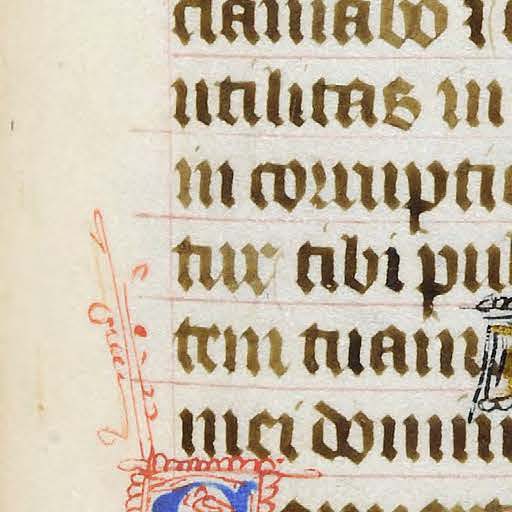 clamabo
utilitas in
in corruptio
tur tibi pul
tem tuam
mei domin